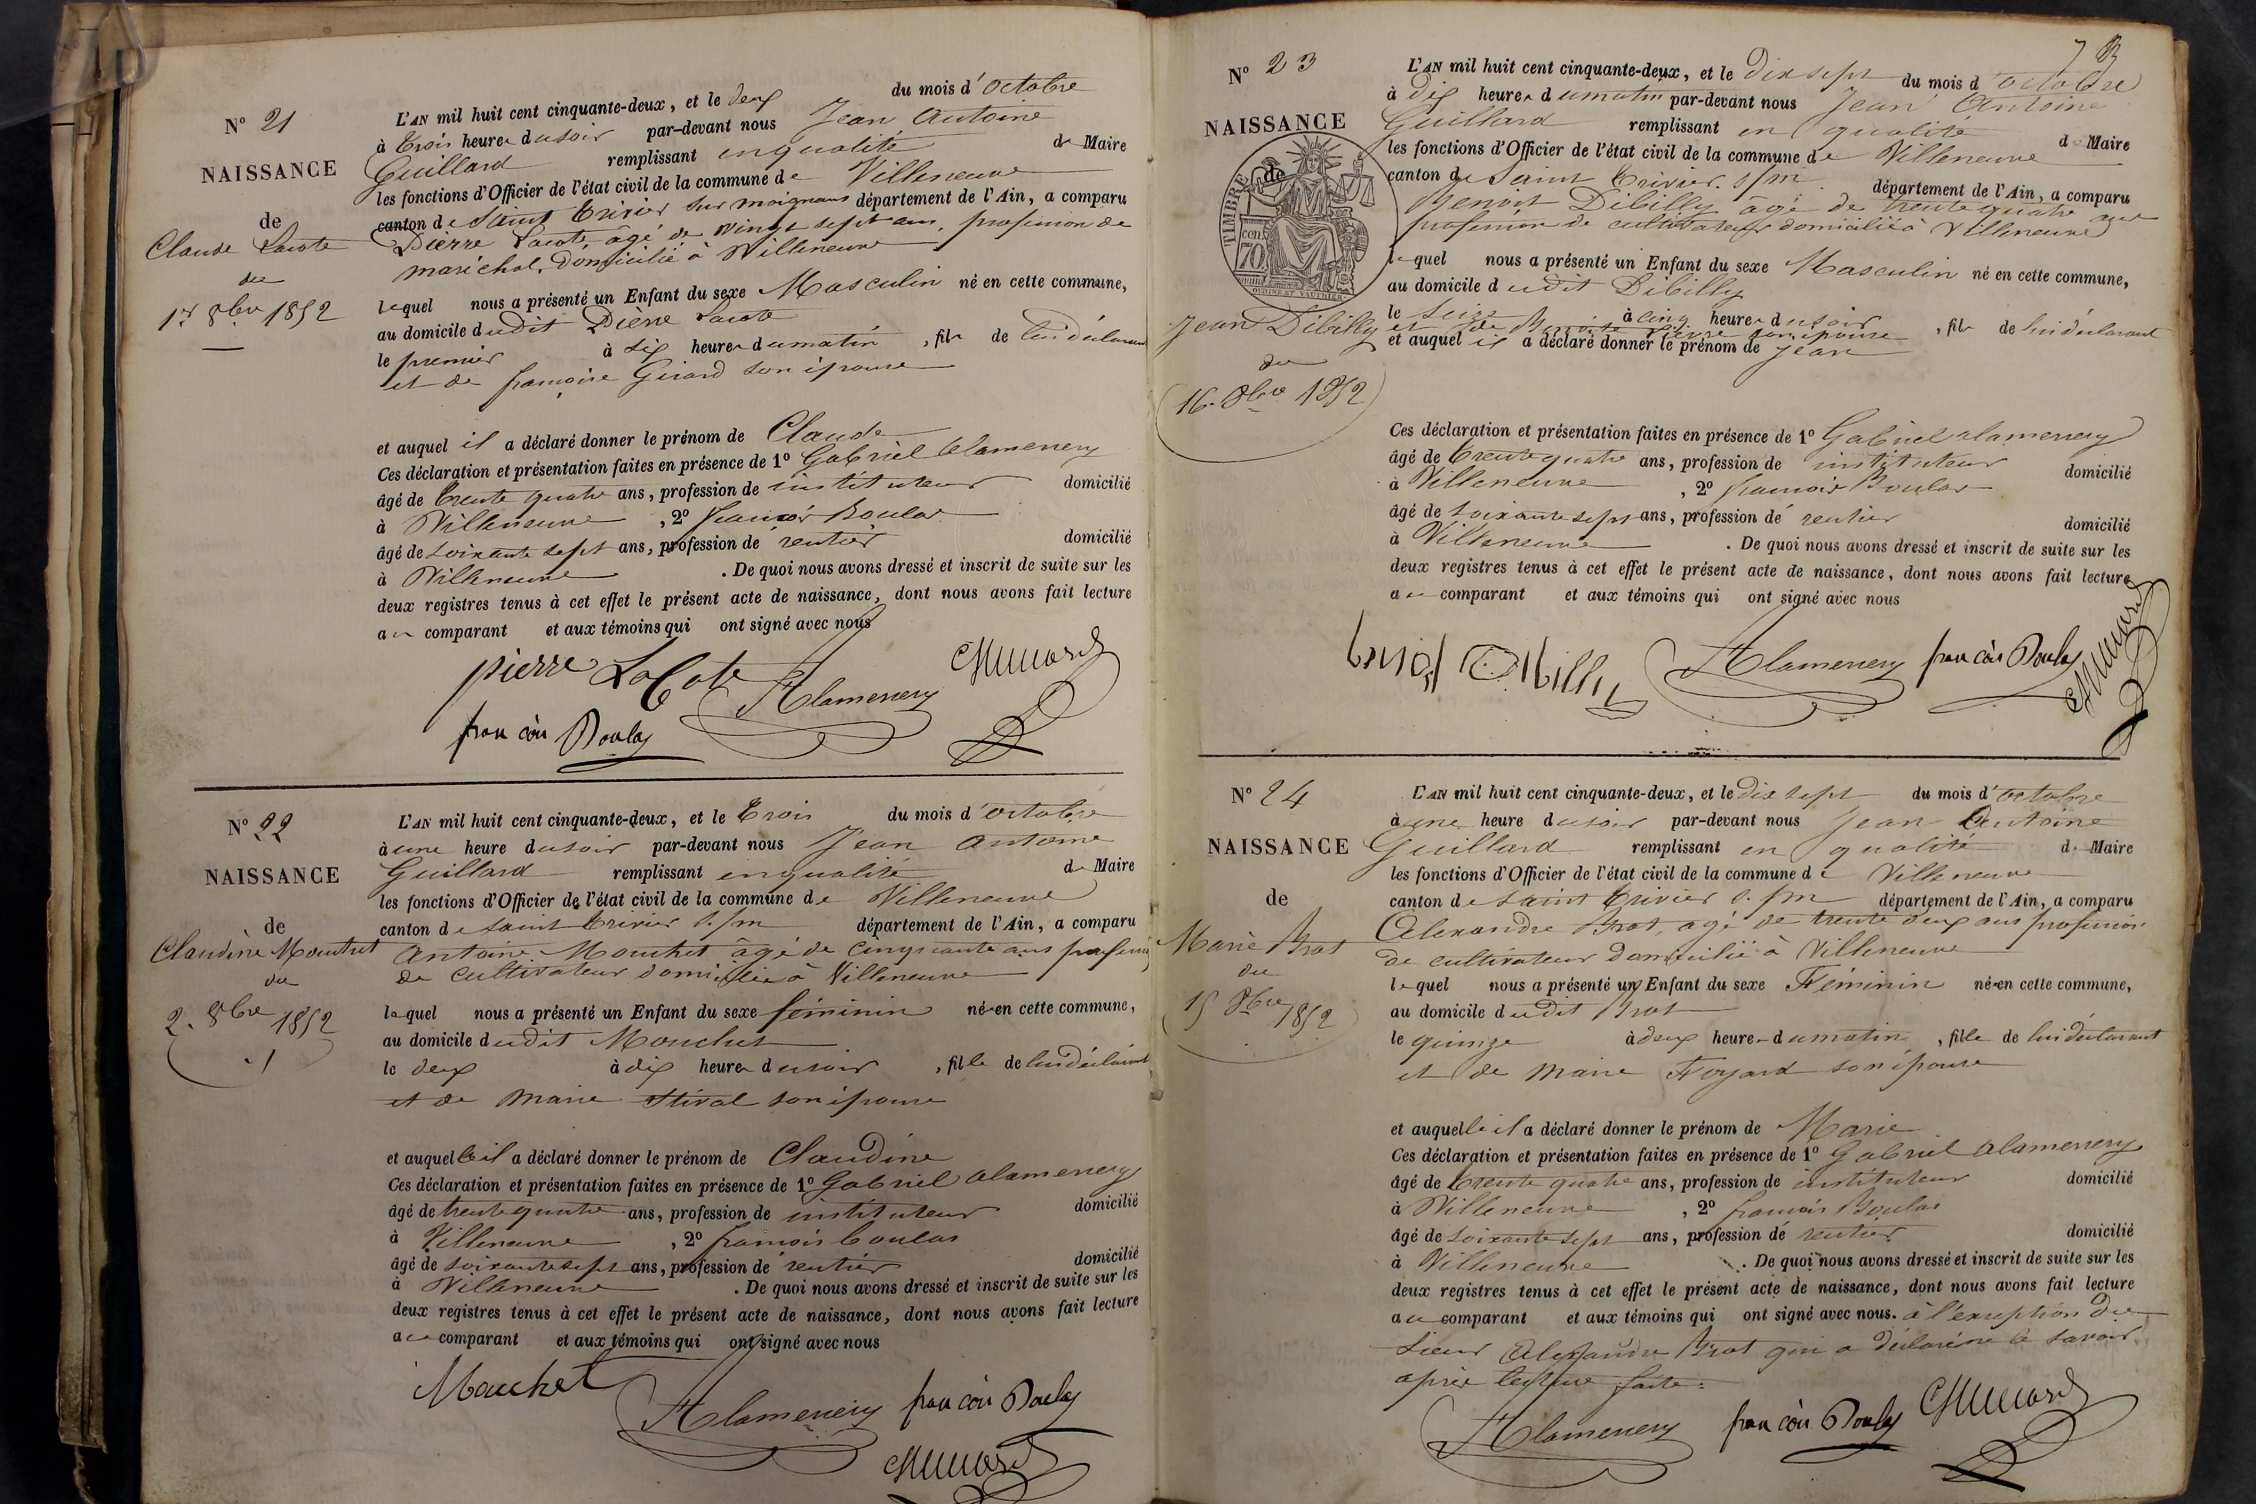 N° 21
NAISSANCE
de
Claude Lacote
du
1er 8bre 1852
L'AN mil huit cent cinquante-deux, et le deux du mois d'octobre
à trois heures du soir par-devant nous Jean Antoine
Guillard remplissant en qualité de Maire
les fonctions d'Officier de l'état civil de la commune de Villeneuve
canton de Saint Trivier sur moignans département de l'Ain, a comparu
Pierre Lacote, âgé de vingt sept ans, profession de
maréchal, domicilié à Villeneuve
lequel nous a présenté un Enfant du sexe Masculin né en cette commune,
au domicile dudit Pierre Lacote
le premier à six heures du matin, fils de lui déclarant
et de françoise Girard son épouse
et auquel il a déclaré donner le prénom de Claude
Ces déclaration et présentation faites en présence de 1° Gabriel alamercery
âgé de trente quatre ans, profession de instituteur domicilié
à Villeneuve, 2° françois Boulas
âgé de soixante sept ans, profession de rentier domicilié
à Villeneuve. De quoi nous avons dressé et inscrit de suite sur les
deux registres tenus à cet effet le présent acte de naissance, dont nous avons fait lecture
au comparant et aux témoins qui ont signé avec nous
pierre LaCote Alamercery
françois Boulas
N° 22
NAISSANCE
de
Claudine Mouchet
du
2. 8bre 1852
L'AN mil huit cent cinquante-deux, et le trois du mois d'octobre
à une heure du soir par-devant nous Jean Antoine
Guillard remplissant en qualité de Maire
les fonctions d'Officier de l'état civil de la commune de Villeneuve
canton de Saint Trivier s/m département de l'Ain, a comparu
Antoine Mouchet âgé de cinquante ans profession
de cultivateur domicilié à Villeneuve
lequel nous a présenté un Enfant du sexe féminin née en cette commune,
au domicile dudit Mouchet
le deux à dix heures du soir, fille de lui déclarant
et de Marie Stival son épouse
et auquelle il a déclaré donner le prénom de Claudine
Ces déclaration et présentation faites en présence de 1° Gabriel alamercery
âgé de trente quatre ans, profession de instituteur domicilié
à Villeneuve, 2° françois Boulas
âgé de soixante sept ans, profession de rentier domicilié
à Villeneuve. De quoi nous avons dressé et inscrit de suite sur les
deux registres tenus à cet effet le présent acte de naissance, dont nous avons fait lecture
au comparant et aux témoins qui ont signé avec nous
Mouchet Alamercery françois Boulas
N° 23
NAISSANCE
de
TIMBRE
70 cen.
Jean Dibilly
du
16. 8bre 1852
L'AN mil huit cent cinquante-deux, et le dix sept du mois d'octobre
à dix heures du matin par-devant nous Jean Antoine
Guillard remplissant en qualité de Maire
les fonctions d'Officier de l'état civil de la commune de Villeneuve
canton de Saint Trivier s/m département de l'Ain, a comparu
Benoit Dibilly âgé de trente quatre ans
profession de cultivateur domicilié à Villeneuve
lequel nous a présenté un Enfant du sexe Masculin né en cette commune,
au domicile dudit Dibilly
le seize à cinq heures du soir, fils de lui déclarant
et de son épouse
et auquel il a déclaré donner le prénom de Jean
Ces déclaration et présentation faites en présence de 1° Gabriel alamercery
âgé de trente quatre ans, profession de instituteur domicilié
à Villeneuve, 2° françois Boulas
âgé de soixante sept ans, profession de rentier domicilié
à Villeneuve. De quoi nous avons dressé et inscrit de suite sur les
deux registres tenus à cet effet le présent acte de naissance, dont nous avons fait lecture
au comparant et aux témoins qui ont signé avec nous
Alamercery françois Boulas
N° 24
NAISSANCE
de
Marie Brot
du
15 8bre 1852
L'AN mil huit cent cinquante-deux, et le dix sept du mois d'octobre
à une heure du soir par-devant nous Jean Antoine
Guillard remplissant en qualité de Maire
les fonctions d'Officier de l'état civil de la commune de Villeneuve
canton de Saint Trivier s/m département de l'Ain, a comparu
Alexandre Brot, âgé de trente deux ans profession
de cultivateur domicilié à Villeneuve
lequel nous a présenté un Enfant du sexe Féminin née en cette commune,
au domicile dudit Brot
le quinze à deux heures du matin, fille de lui déclarant
et de Marie Foyard son épouse
et auquelle il a déclaré donner le prénom de Marie
Ces déclaration et présentation faites en présence de 1° Gabriel alamercery
âgé de trente quatre ans, profession de instituteur domicilié
à Villeneuve, 2° françois Boulas
âgé de soixante sept ans, profession de rentier domicilié
à Villeneuve. De quoi nous avons dressé et inscrit de suite sur les
deux registres tenus à cet effet le présent acte de naissance, dont nous avons fait lecture
au comparant et aux témoins qui ont signé avec nous. à l'exception du
sieur Alexandre Brot qui a déclaré ne le savoir
après lecture faite.
Alamercery françois Boulas